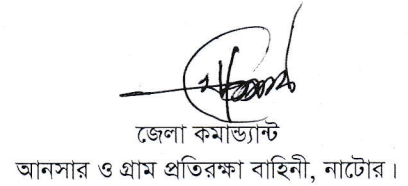 জেলা কমান্ড্যান্ট
আনসার ও গ্রাম প্রতিরক্ষা বাহিনী, নাটোর।